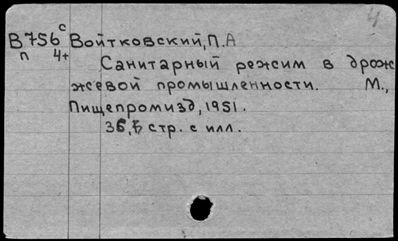 4
В756с Войтковский, П.А
п 4+
Санитарный режим в дрож
жевой промышленности. М.,
Пищепромизд, 1951.
36, стр. с илл.